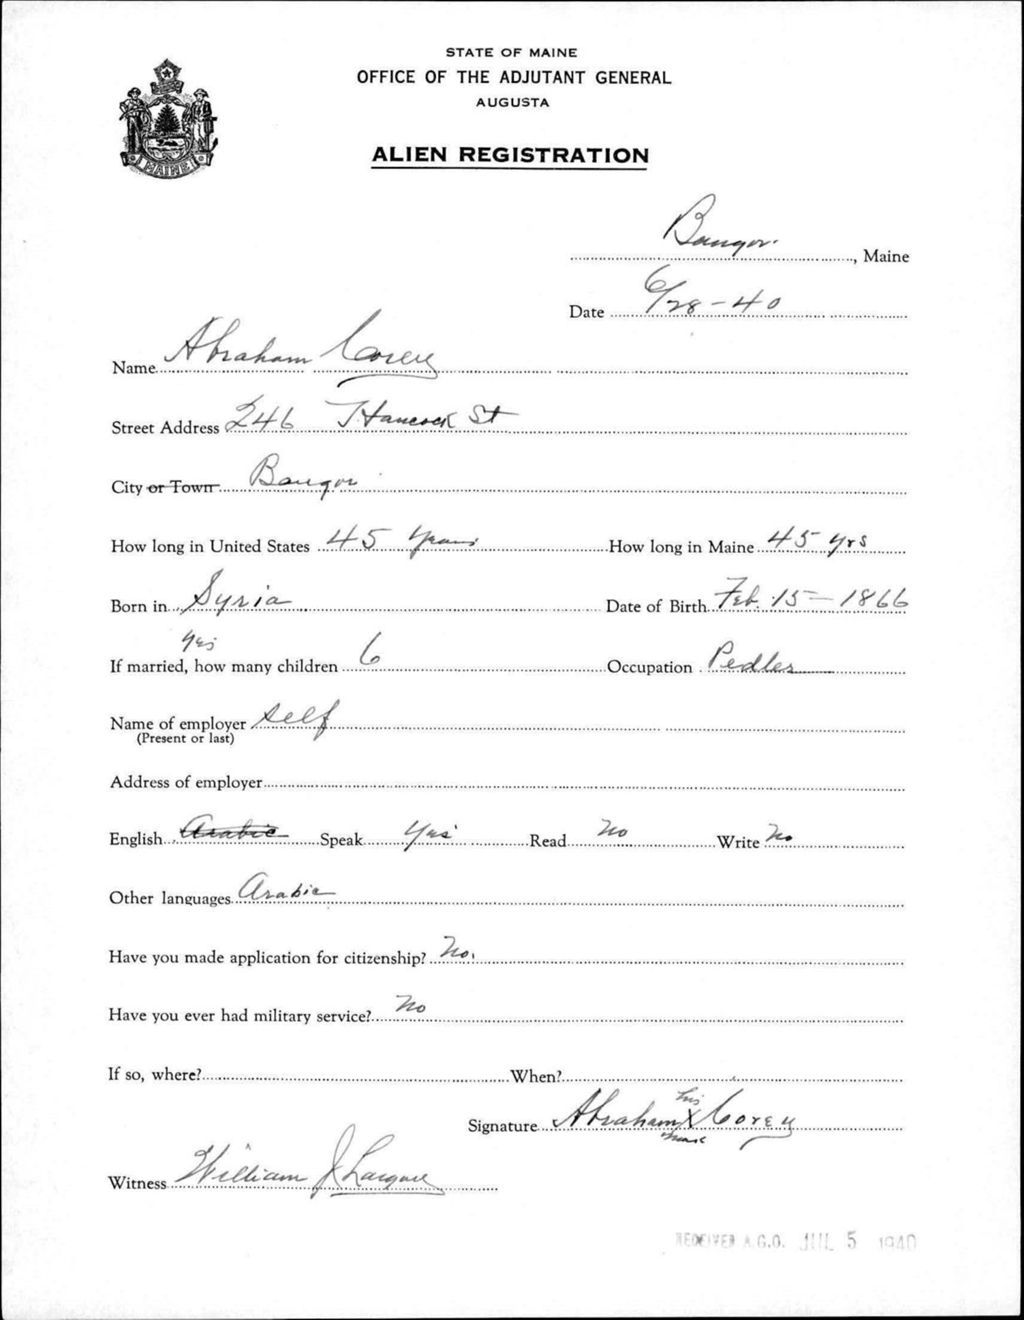 STATE OF MAINE
OFFICE OF THE ADJUTANT GENERAL
AUGUSTA
ALIEN REGISTRATION
MAINE
Bangor, Maine
Date 6/28-40
Name Abraham Corey
Street Address 246 Hancock St
City or Town Bangor
How long in United States 45 years How long in Maine 45 yrs
Born in Syria Date of Birth Feb. 15-1866
yes
If married, how many children 6 Occupation Pedler
Name of employer self
(Present or last)
Address of employer
English Arabic Speak Yes Read No Write No
Other languages Arabic
Have you made application for citizenship? No.
Have you ever had military service? No
If so, where? When?
his
Signature Abraham X Corey
mark
Witness William J
RECEIVED A.G.O. JUL 5 1940